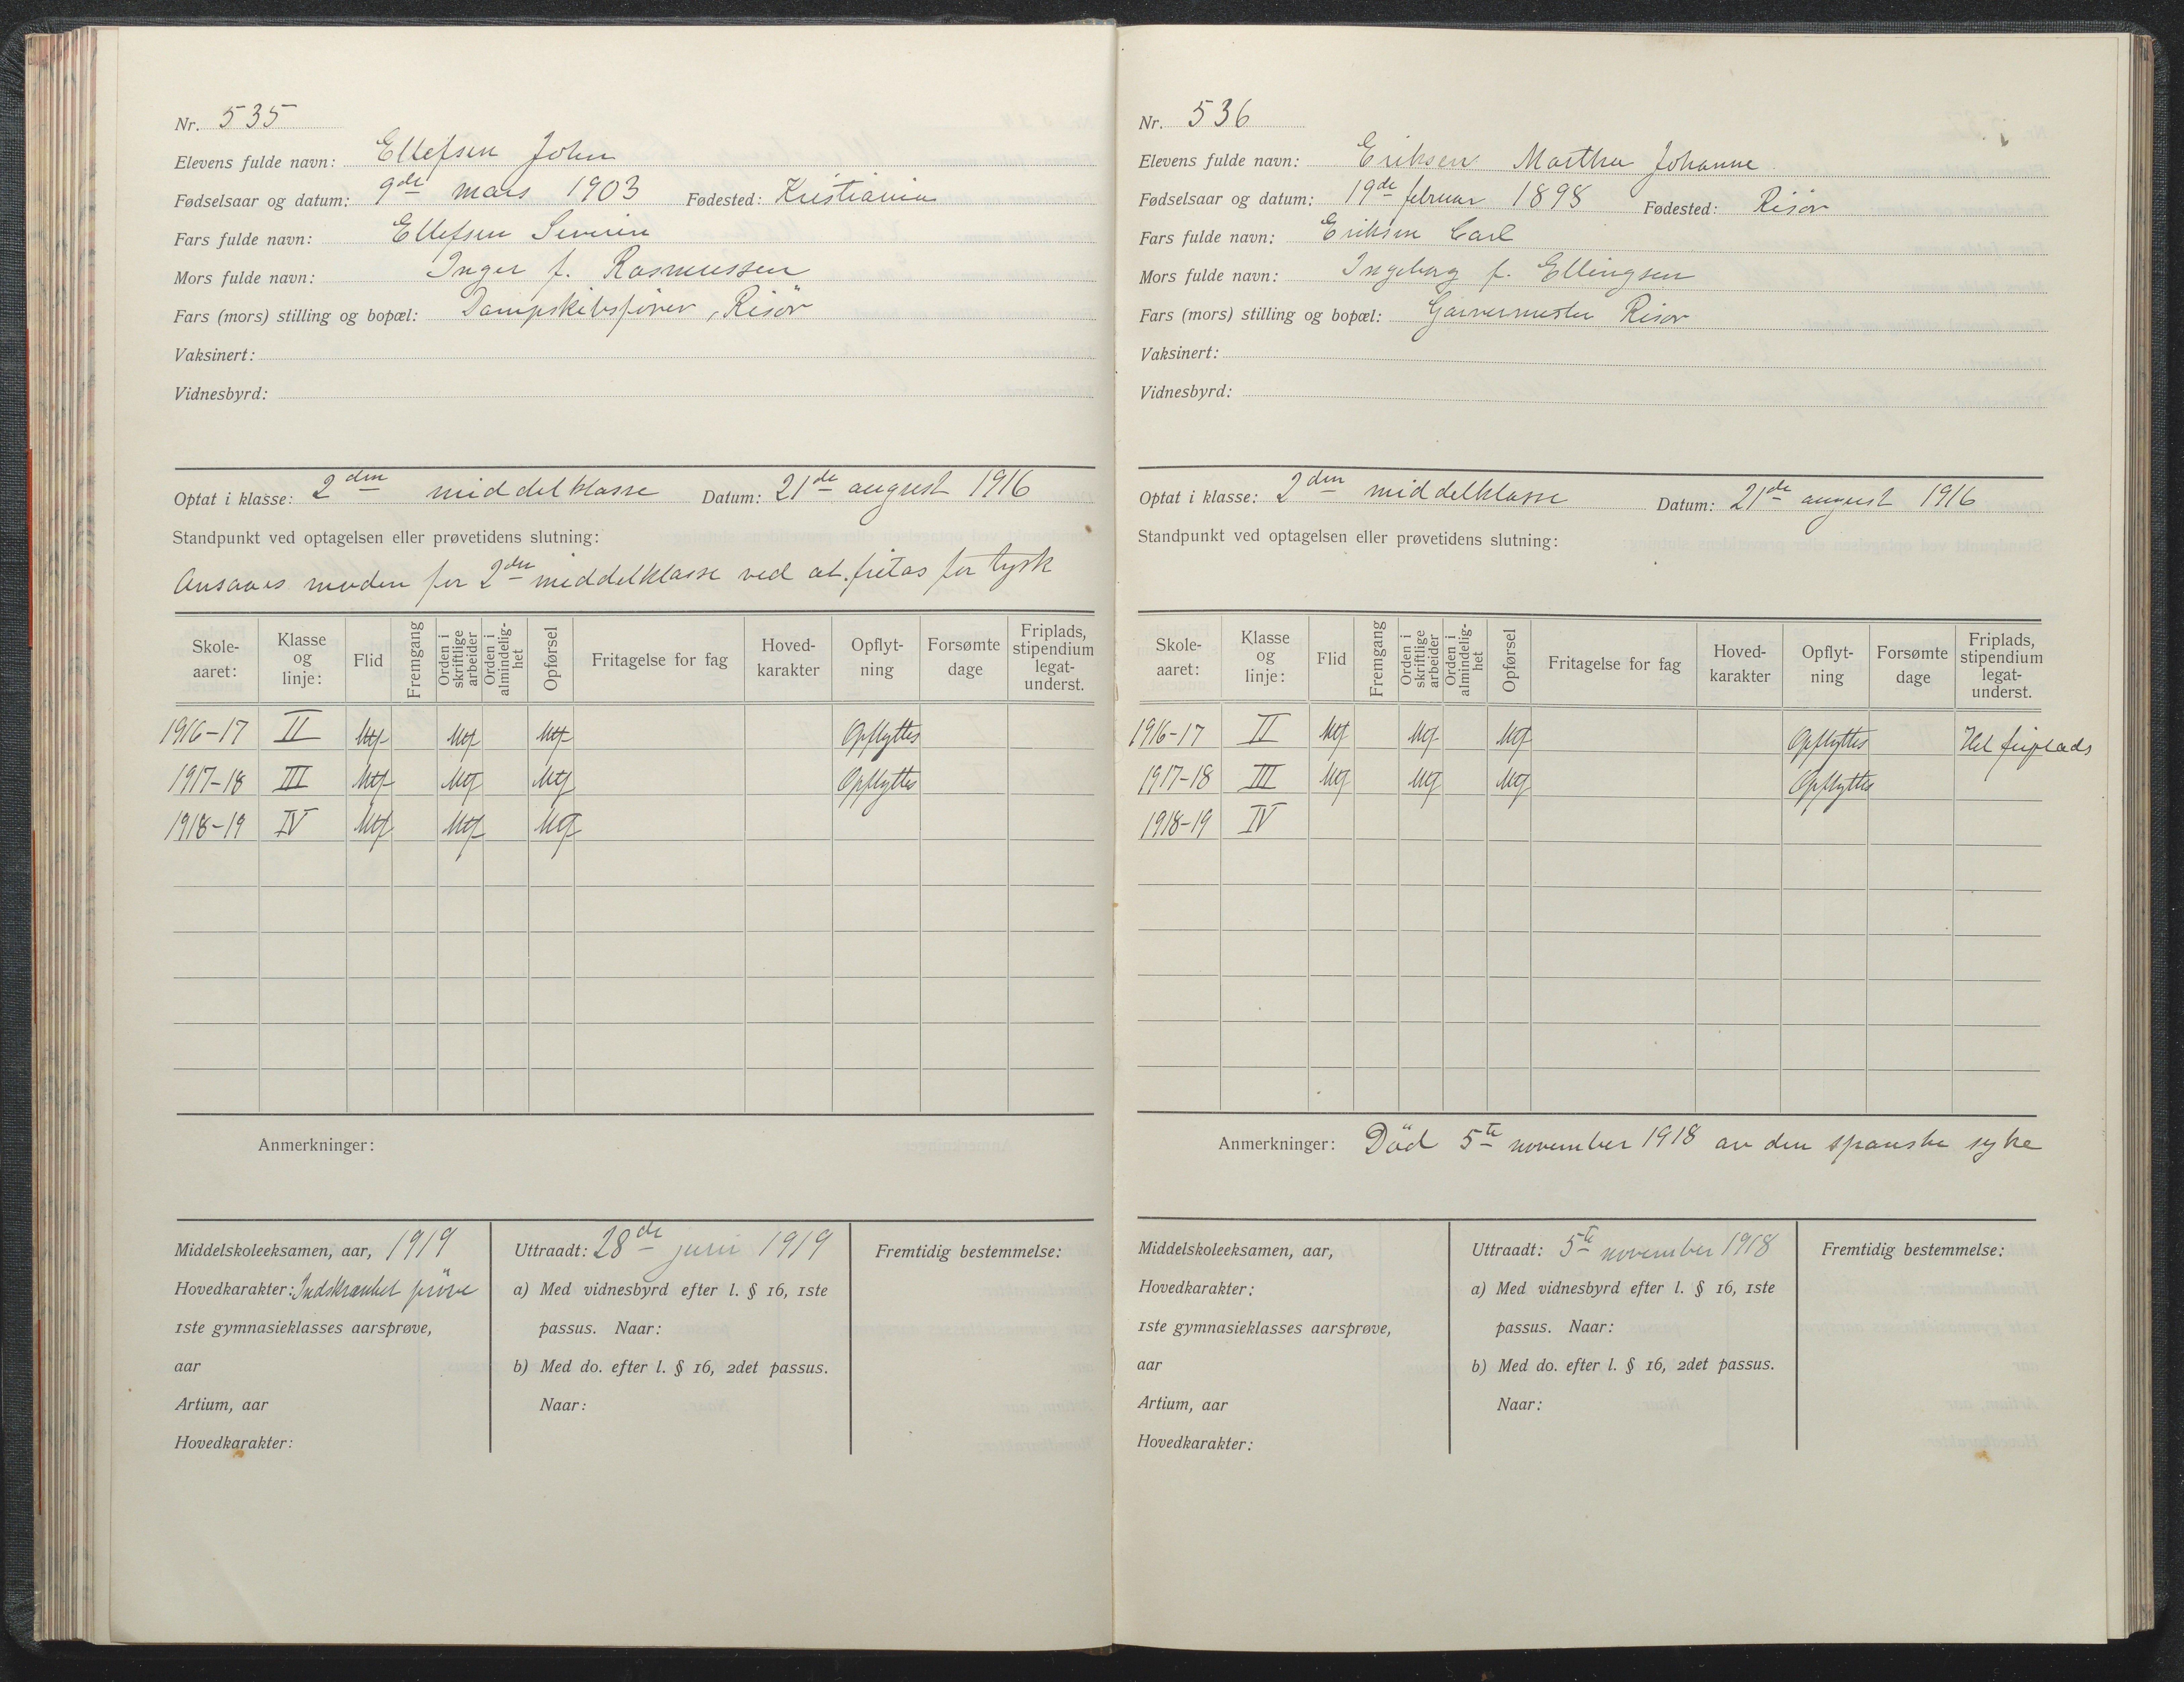 Nr. 535
Elevens fulde navn: Ellefsen John
Fødselsaar og datum: 9de mars 1903 Fødested: Kristiania
Fars fulde navn: Ellefsen Severin
Mors fulde navn: Inger f. Rasmussen
Fars (mors) stilling og bopæl: Dampskibsfører, Risør
Vaksinert:
Vidnesbyrd:
Optat i klasse: 2den middelklasse Datum: 21de august 1916
Standpunkt ved optagelsen eller prøvetidens slutning:
Ansaaes moden for 2den middelklasse ved at fritas for tysk
Skoleaaret: Klasse og linje: Flid Fremgang Orden i skriftlige arbeider Orden i almindelighet Opførsel Fritagelse for fag Hovedkarakter Opflytning Forsømte dage Friplads, stipendium legat-underst.
1916-17 II Mg Mg Mg Opflyttes
1917-18 III Mg Mg Mg Opflyttes
1918-19 IV Mg Mg Mg
Anmerkninger:
Middelskoleeksamen, aar, 1919
Hovedkarakter: Indskrænket prøve
1ste gymnasieklasses aarsprøve,
aar
Artium, aar
Hovedkarakter:
Uttraadt: 28de juni 1919
a) Med vidnesbyrd efter l. § 16, 1ste
passus. Naar:
b) Med do. efter l. § 16, 2det passus.
Naar:
Fremtidig bestemmelse:
Nr. 536
Elevens fulde navn: Eriksen Martha Johanne
Fødselsaar og datum: 19de februar 1898 Fødested: Risør
Fars fulde navn: Eriksen Carl
Mors fulde navn: Ingeborg f. Ellingsen
Fars (mors) stilling og bopæl: Garvermester Risør
Vaksinert:
Vidnesbyrd:
Optat i klasse: 2den middelklasse Datum: 21de august 1916
Standpunkt ved optagelsen eller prøvetidens slutning:
Skoleaaret: Klasse og linje: Flid Fremgang Orden i skriftlige arbeider Orden i almindelighet Opførsel Fritagelse for fag Hovedkarakter Opflytning Forsømte dage Friplads, stipendium legat-underst.
1916-17 II Mg Mg Mg Opflyttes Hel friplads
1917-18 III Mg Mg Mg Opflyttes
1918-19 IV
Anmerkninger: Död 5te november 1918 av den spanske syke
Middelskoleeksamen, aar,
Hovedkarakter:
1ste gymnasieklasses aarsprøve,
aar
Artium, aar
Hovedkarakter:
Uttraadt: 5te november 1918
a) Med vidnesbyrd efter l. § 16, 1ste
passus. Naar:
b) Med do. efter l. § 16, 2det passus.
Naar:
Fremtidig bestemmelse: